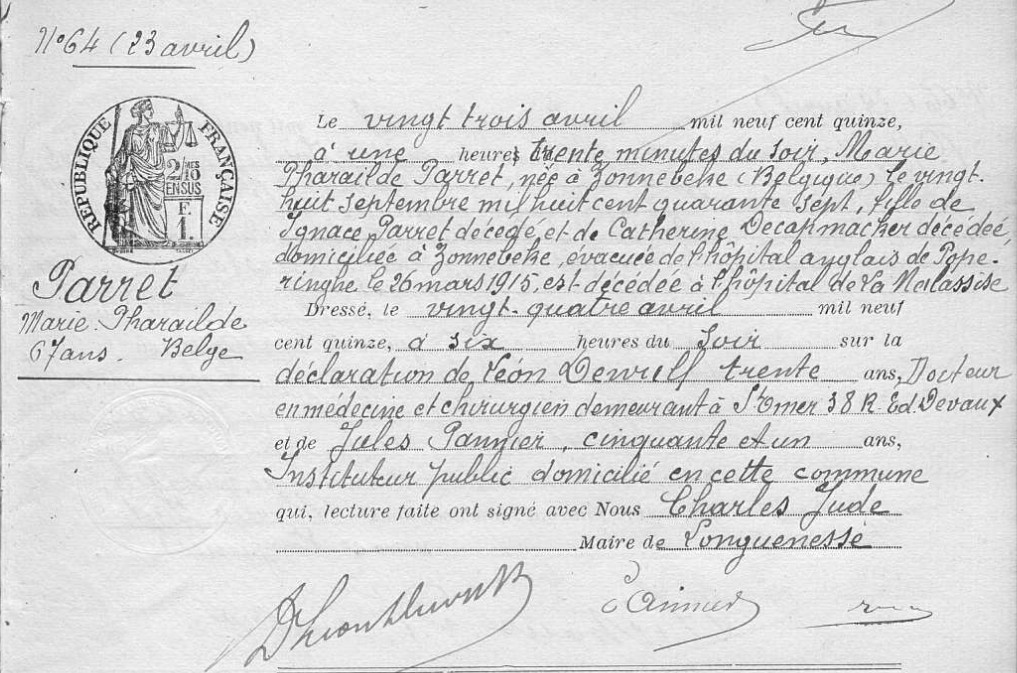 N°64 (23 avril)
RÉPUBLIQUE FRANÇAISE
2/10 MES
EN SUS
F.
1.
Parret
Marie Pharaïlde
67 ans. Belge
Le vingt trois avril mil neuf cent quinze,
à une heures trente minutes du soir, Marie
Pharaïlde Parret, née à Zonnebeke (Belgique) le vingt-
huit septembre mil huit cent quarante sept, fille de
Ignace Parret décédé, et de Catherine Decapmacker décédée,
domiciliée à Zonnebeke, évacuée de l'hôpital anglais de Pope-
ringhe le 26 mars 1915, est décédée à l'hôpital de la Malassise
Dressé, le vingt-quatre avril mil neuf
cent quinze, à six heures du soir sur la
déclaration de Léon Dewulf trente ans, Docteur
en médecine et chirurgien demeurant à St Omer 38 R. Ed Devaux
et de Jules Pannier, cinquante et un ans,
Instituteur public domicilié en cette commune
qui, lecture faite ont signé avec Nous Charles Jude
Maire de Longuenesse
Pannier